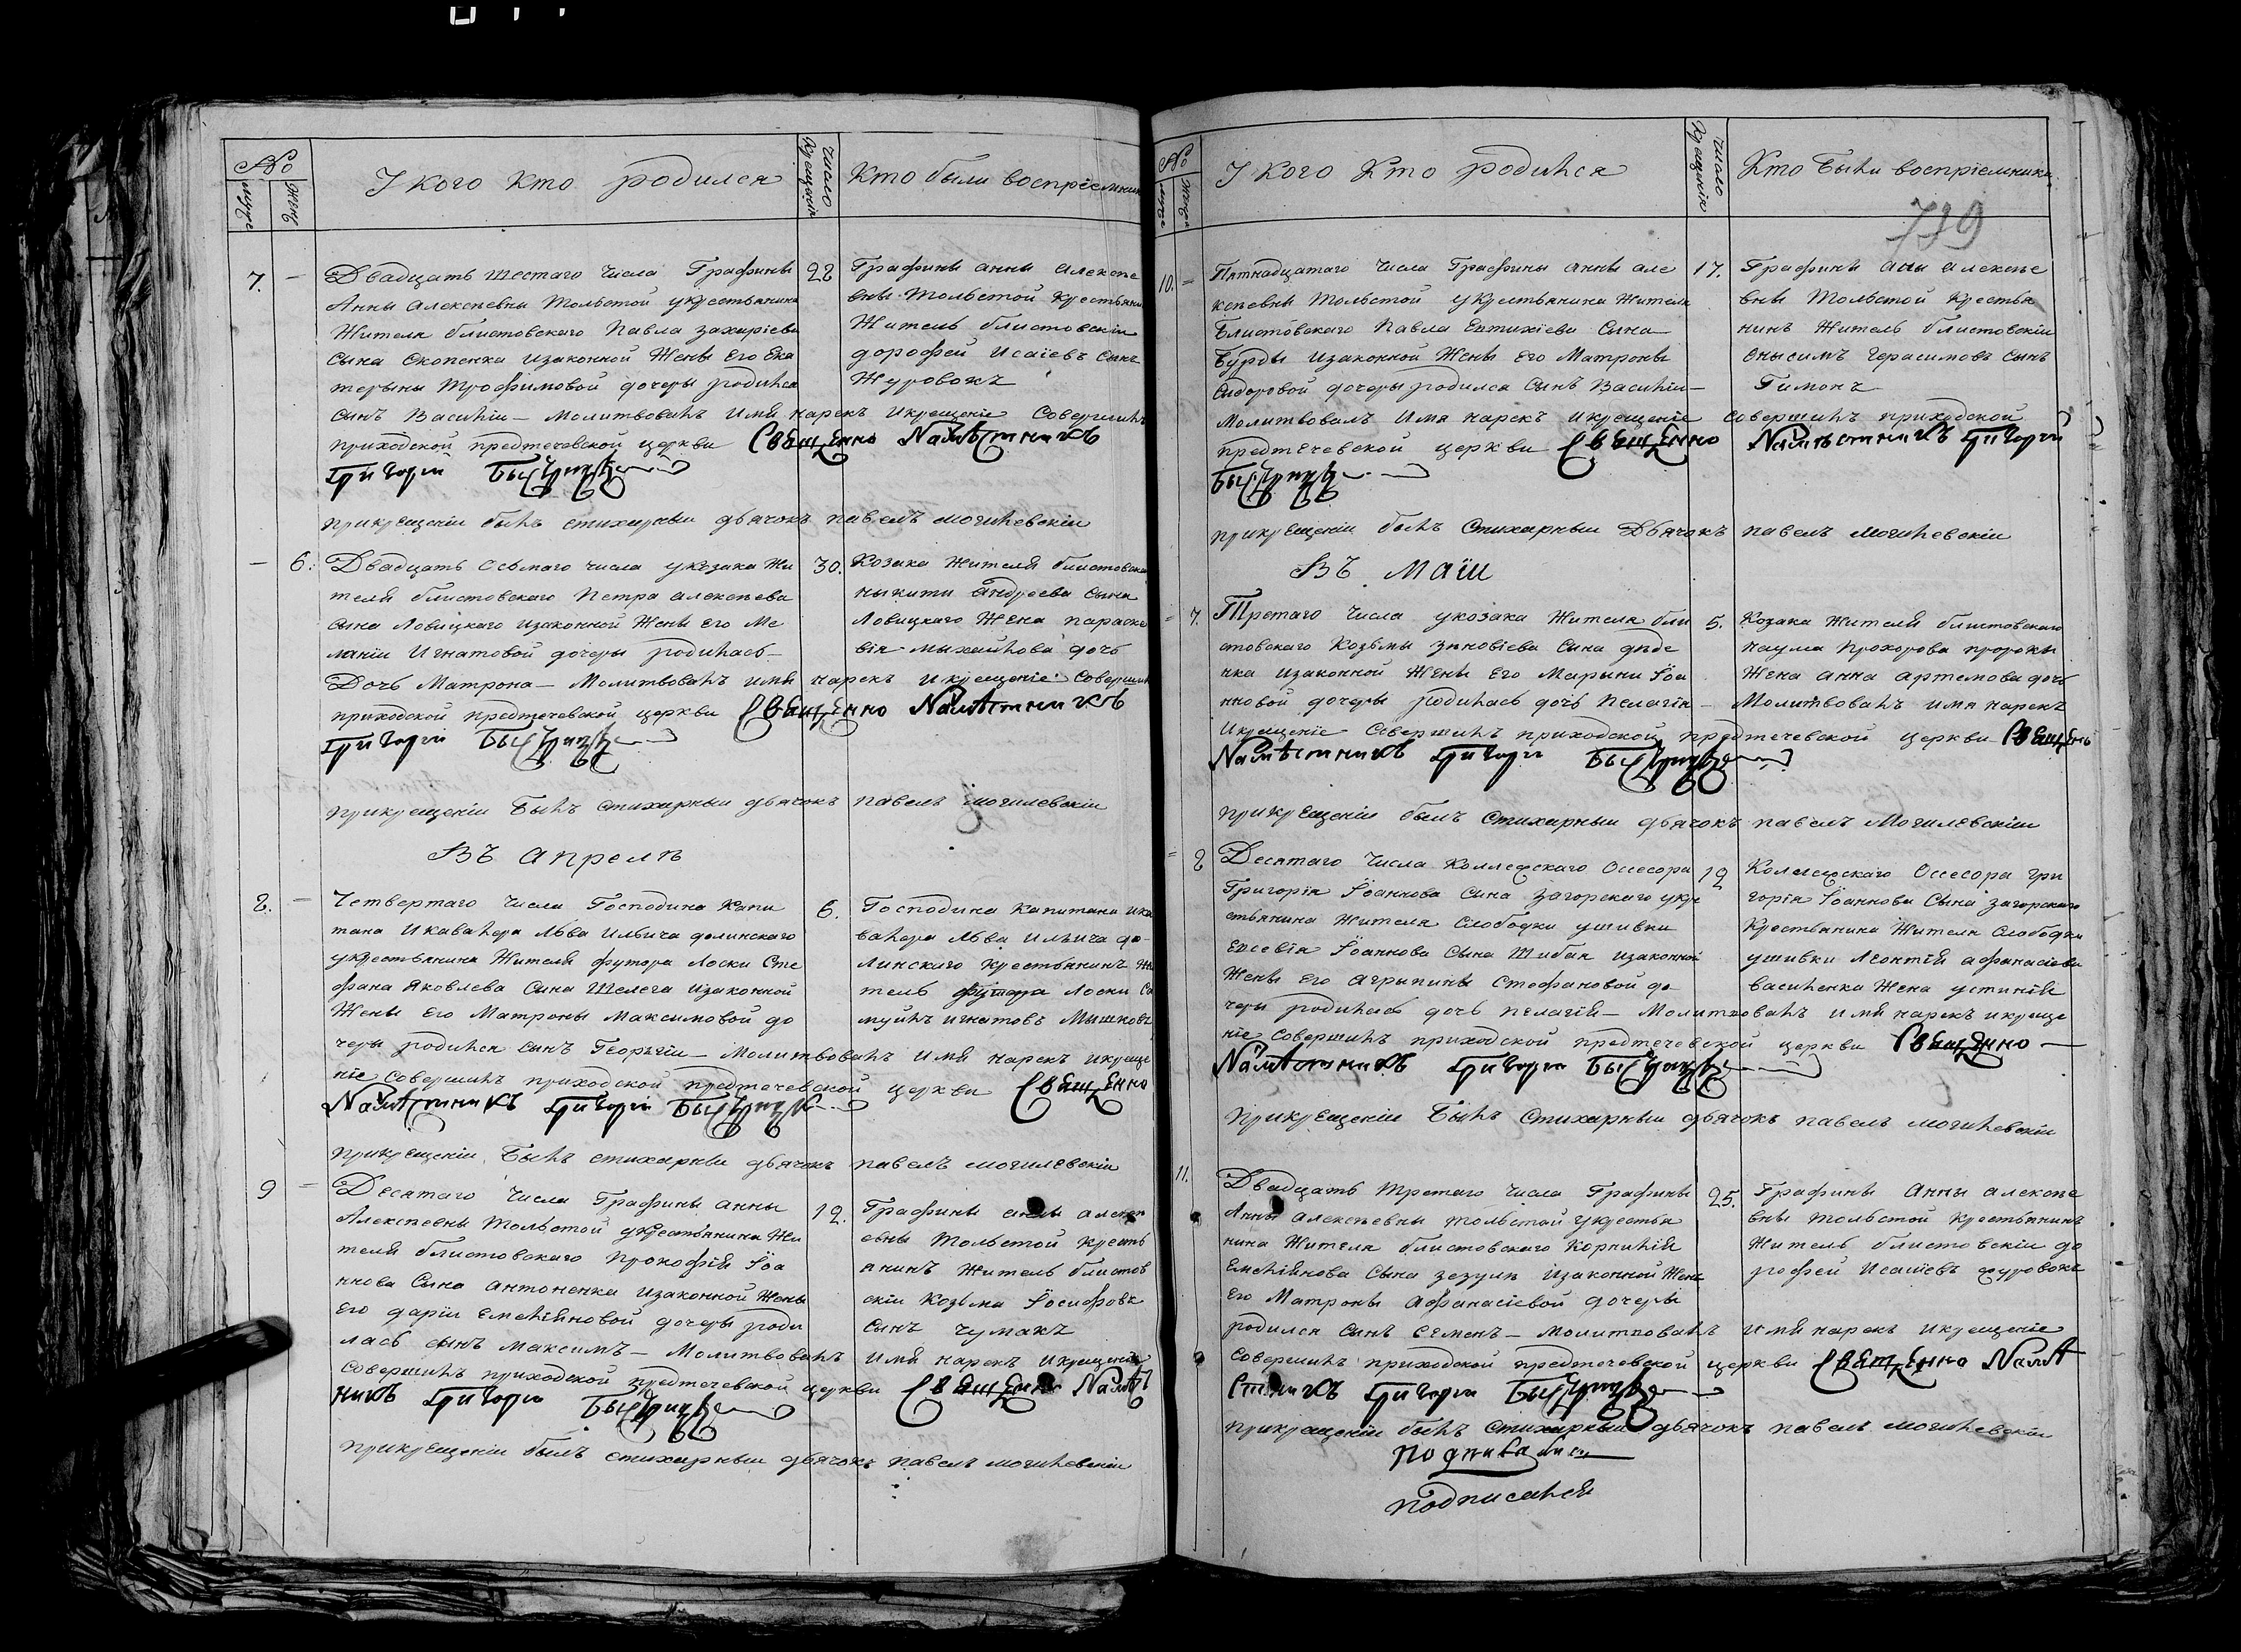 №
мужс
женс
У кого кто родился
число крещенія
Кто были воспріемники
7. — Двадцать шестаго числа Графины
Анны Алексѣевны Тольстой укрестьянина
Жителя блистовского Павла захаріева
Сына Скопенка изаконной Жены Его Ека
терыны Трофимовой дочеры родился
сынъ Василіи — Молитвовалъ имя нарекъ икрещеніе Совершилъ
приходской предтечевской церкви Священно Намѣстникъ
Григорій
28
Графины анны алексѣе
вны Тольстой крестьяни
Житель блистовскіи
дорофей Исаіевъ сынъ
Журовокъ
прикрещеніи былъ стихарныи дьячокъ павелъ могилевскіи
— 6. Двадцать осьмаго числа укозака Жи
теля блистовского Петра алексѣева
сына Ловицкаго изаконной Жены его Ме
ланіи Игнатовой дочеры родилась
Дочь Матрона — Молитвовалъ имя нарекъ икрещеніе Соверши
приходской предтечевской церкви Священно Намѣстникъ
Григорій
30.
Козака Жителя блистовска
ныкити андреева сына
Ловицкаго Жена параске
вія мыхайлова дочь
прикрещеніи былъ стихарныи дьячокъ павелъ могилевскіи
Въ апрелѣ
8. — Четвертаго числа Господина капи
тана икавалера Льва Ильича долинскаго
укрестьянина Жителя футора Лоски Сте
фана Яковлева Сина Шелега изаконной
Жены его Матроны Максимовой до
черы родился сынъ Георъгіи — Молитвовалъ имя нарекъ икреще
ніе совершилъ приходской предтечевской церкви Священно
Намѣстникъ Григорій
6.
Господина капитана ика
валера Льва ильича до-
линскаго крестьянинъ Жи
тель футора Лоски Са
муилъ игнатовъ
прикрещеніи былъ стихарныи дьячокъ павелъ могилевскіи
9 — Десятаго числа Графины анны
Алексѣевны Тольстой укрестьянина Жи
теля блистовского Прокофія Іоа
ннова Сына антоненка изаконной Жены
его даріи Емелiяновой дочеры роди
лась сынъ Максимъ — Молитвовалъ имя нарекъ икрещеніе
совершилъ приходской предтечевской церкви Священно Намѣст
никъ Григорій
12.
Графины анны алексѣ
евны Тольстой крестъ
янинъ Житель блистов
скіи Козьма Іосифовъ
сынъ чумакъ
прикрещеніи былъ стихарныи дьячокъ павелъ могилевскіи
№
мужс
женс
У кого Кто родился
число крещенія
Кто были воспріемники
739
10. = Пятнадцатаго числа Графины анны але
ксѣевны Тольстой укрестьянина Жителя
Блистовского Павла Евтихіева Сина
Бурды изаконной Жены его Матроны
Сидоровой дочеры родился сынъ Василіи —
Молитвовалъ имя нарекъ икрещеніе совершилъ приходской
предтечевской церкви Священно Намѣстникъ Григорій
17.
Графины аны алексѣе
вны Тольстой Крестья
нинъ Житель блистовскіи
Онысимъ Герасимовъ сынъ
Гимонъ
прикрещеніи былъ Стихарныи Дьячокъ павелъ могилевскіи
Въ Маіи
= 7. Третаго числа укозака Жителя бли
стовского Козьмы зиновіева Сына дѣде
нка изаконной Жены его Марыны Іоа
нновой дочеры родилась дочь Пелагія — Молитвовалъ имя нарекъ
икрещеніе Савершилъ приходской предтечевской церкви Священно
Намѣстникъ Григорій
5.
Козака Жителя блистовского
наума Прохорова
Жена анна артемова дочь
прикрещеніи былъ Стихарныи дьячокъ павелъ Могилевскіи
= 8 Десятаго числа Коллежскаго Оссесора
Григорія Іоаннова Сина Загорскаго укре
стьянина Жителя Слободки ушивки
Евсевія Іоаннова Сына Шибан изаконной
Жены его агрыпины Стефановой до
черы родилась дочь пелагія — Молитвовалъ имя нарекъ икреще
ніе совершилъ приходской предтечевской церкви Священно —
Намѣстникъ Григорій
12
Колежскаго Оссесора Гри
горія Іоаннова Сына Загорскаго
Крестьянина Жителя Слободки
ушивки Леонтія афанасіева
василенка Жена устинія
Прикрещеніи Былъ Стихарныи дьячокъ павелъ могилевскіи
11. Двадцать третаго числа Графины
Анны алексѣевны тольстой укрестья
нина Жителя блистовского Корнилія
Емеліянова Сына зезули изаконной Жены
его Матроны Афанасіевой дочеры
родился синъ Семенъ — молитвовалъ имя нарекъ икрещеніе
Совершилъ приходской предтечевской церкви Священно Намѣ
стникъ Григорій
25.
Графины Анны алексѣе
вны тольстой крестьянинъ
Житель блистовскіи до
рофей Исаіевъ журовокъ
прикрещеніи былъ стихарныи дьячокъ павелъ могилевскіи
подписался